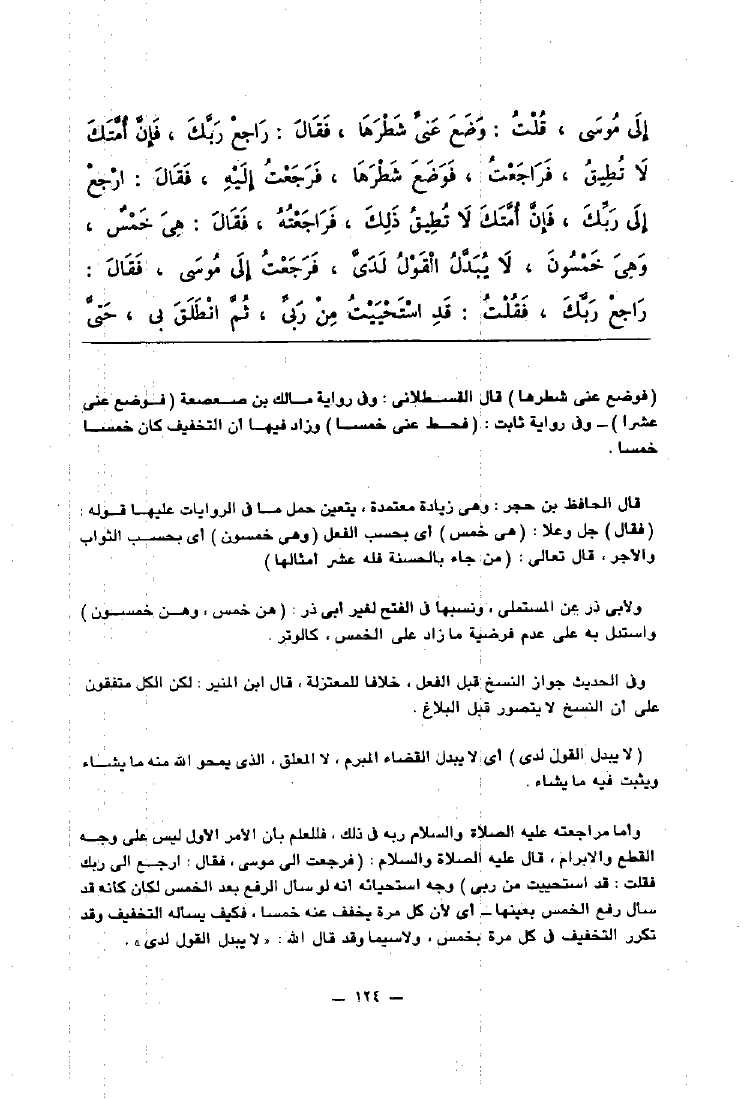 إِلَى مُوسَى ، قُلْتُ : وَضَعَ عَنِّى شَطْرَهَا ، فَقَالَ : رَاجِعْ رَبَّكَ ، فَإِنَّ أُمَّتَكَ
لَا تُطِيقُ ، فَرَاجَعْتُ ، فَوَضَعَ شَطْرَهَا ، فَرَجَعْتُ إِلَيْهِ ، فَقَالَ : ارْجِعْ
إِلَى رَبِّكَ ، فَإِنَّ أُمَّتَكَ لَا تُطِيقُ ذَلِكَ ، فَرَاجَعْتُهُ ، فَقَالَ : هِىَ خَمْسٌ ،
وَهِىَ خَمْسُونَ ، لَا يُبَدَّلُ الْقَوْلُ لَدَىَّ ، فَرَجَعْتُ إِلَى مُوسَى ، فَقَالَ :
رَاجِعْ رَبَّكَ ، فَقُلْتُ : قَدِ اسْتَحْيَيْتُ مِنْ رَبِّى ، ثُمَّ انْطَلَقَ بِى ، حَتَّى
(فوضع عنى شطرها) قال القسطلانى : وفى رواية مالك بن صعصعة (فوضع عنى
عشرا) ــ وفى رواية ثابت : (فحط عنى خمسا) وزاد فيها أن التخفيف كان خمسا
خمسا .
قال الحافظ بن حجر : وهى زيادة معتمدة ، يتعين حمل ما فى الروايات عليها قوله :
(فقال) جل وعلا : (هى خمس) أى بحسب الفعل (وهى خمسون) أى بحسب الثواب
والأجر ، قال تعالى : (من جاء بالحسنة فله عشر أمثالها)
ولأبى ذر عن المستملى ، ونسبها فى الفتح لغير أبى ذر : (هن خمس ، وهن خمسون)
واستدل به على عدم فرضية ما زاد على الخمس ، كالوتر .
وفى الحديث جواز النسخ قبل الفعل ، خلافا للمعتزلة ، قال ابن المنير : لكن الكل متفقون
على أن النسخ لا يتصور قبل البلاغ .
(لا يبدل القول لدى) أى لا يبدل القضاء المبرم ، لا المعلق ، الذى يمحو الله منه ما يشاء
ويثبت فيه ما يشاء .
وأما مراجعته عليه الصلاة والسلام ربه فى ذلك ، فللعلم بأن الأمر الأول ليس على وجه
القطع والابرام ، قال عليه الصلاة والسلام : (فرجعت الى موسى ، فقال : ارجع الى ربك
فقلت : قد استحييت من ربى) وجه استحيائه أنه لو سأل الرفع بعد الخمس لكان كأنه قد
سأل رفع الخمس بعينها ــ أى لأن كل مرة يخفف عنه خمسا ، فكيف يسأله التخفيف وقد
تكرر التخفيف فى كل مرة بخمس ، ولاسيما وقد قال الله : «لا يبدل القول لدى» .
— ١٢٤ —